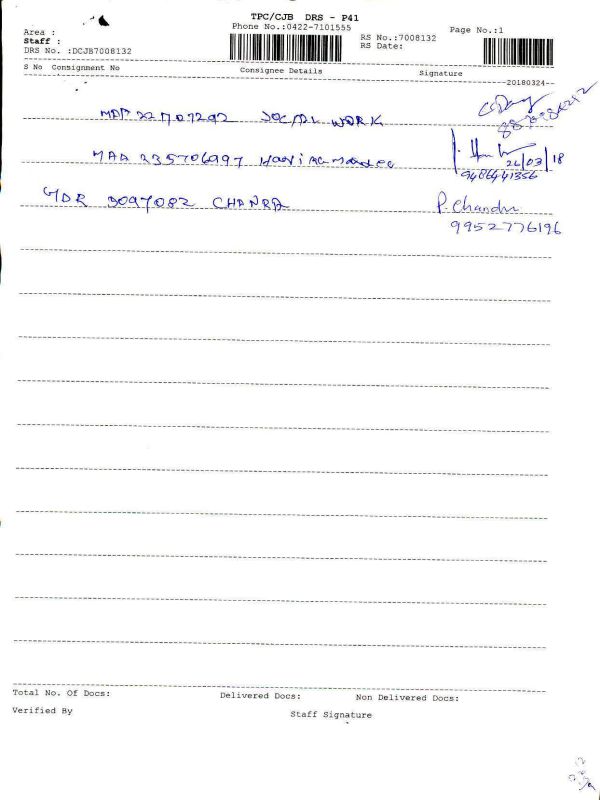 TPC/CJB DRS - P41
Phone No.:0422-7101555
Page No.:1
Area :
Staff :
DRS No. :DCJB7008132
RS No.:7008132
RS Date:
S No Consignment No Consignee Details Signature
20180324
WORK
24/03/18
9486441356
MDR 3097082 CHANRA P. Chandru
9952776196
Total No. Of Docs: Delivered Docs: Non Delivered Docs:
Verified By Staff Signature